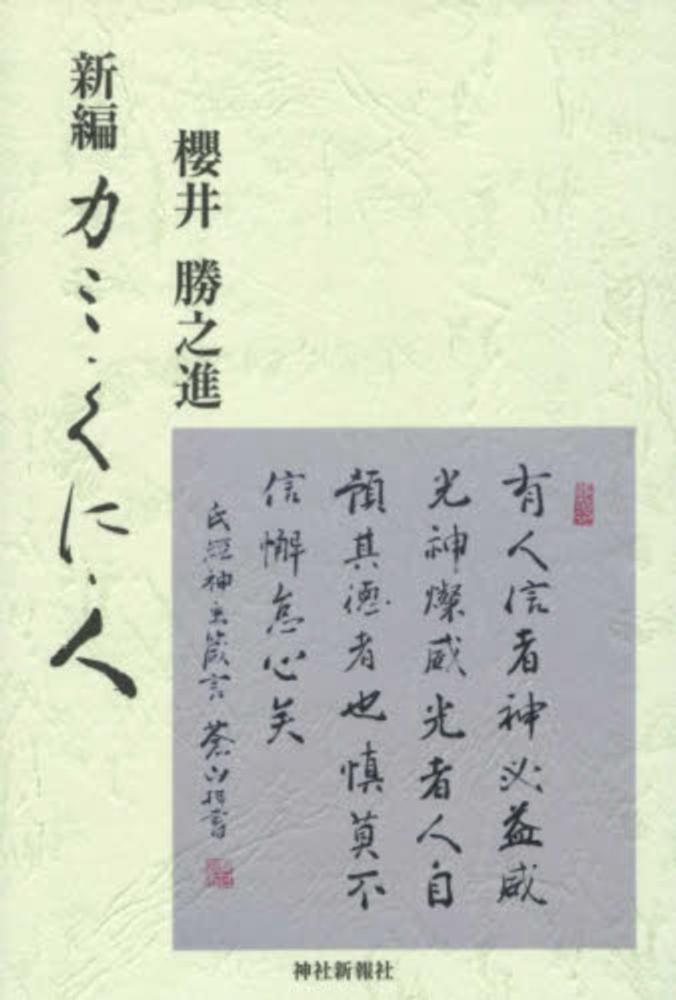 新編 カミ・くに・人
櫻井 勝之進
有人信者神必益威
光神燦威光者人自
預其徳者也慎莫不
信懈怠心矣
氏經神主箴言 蒼
神社新報社